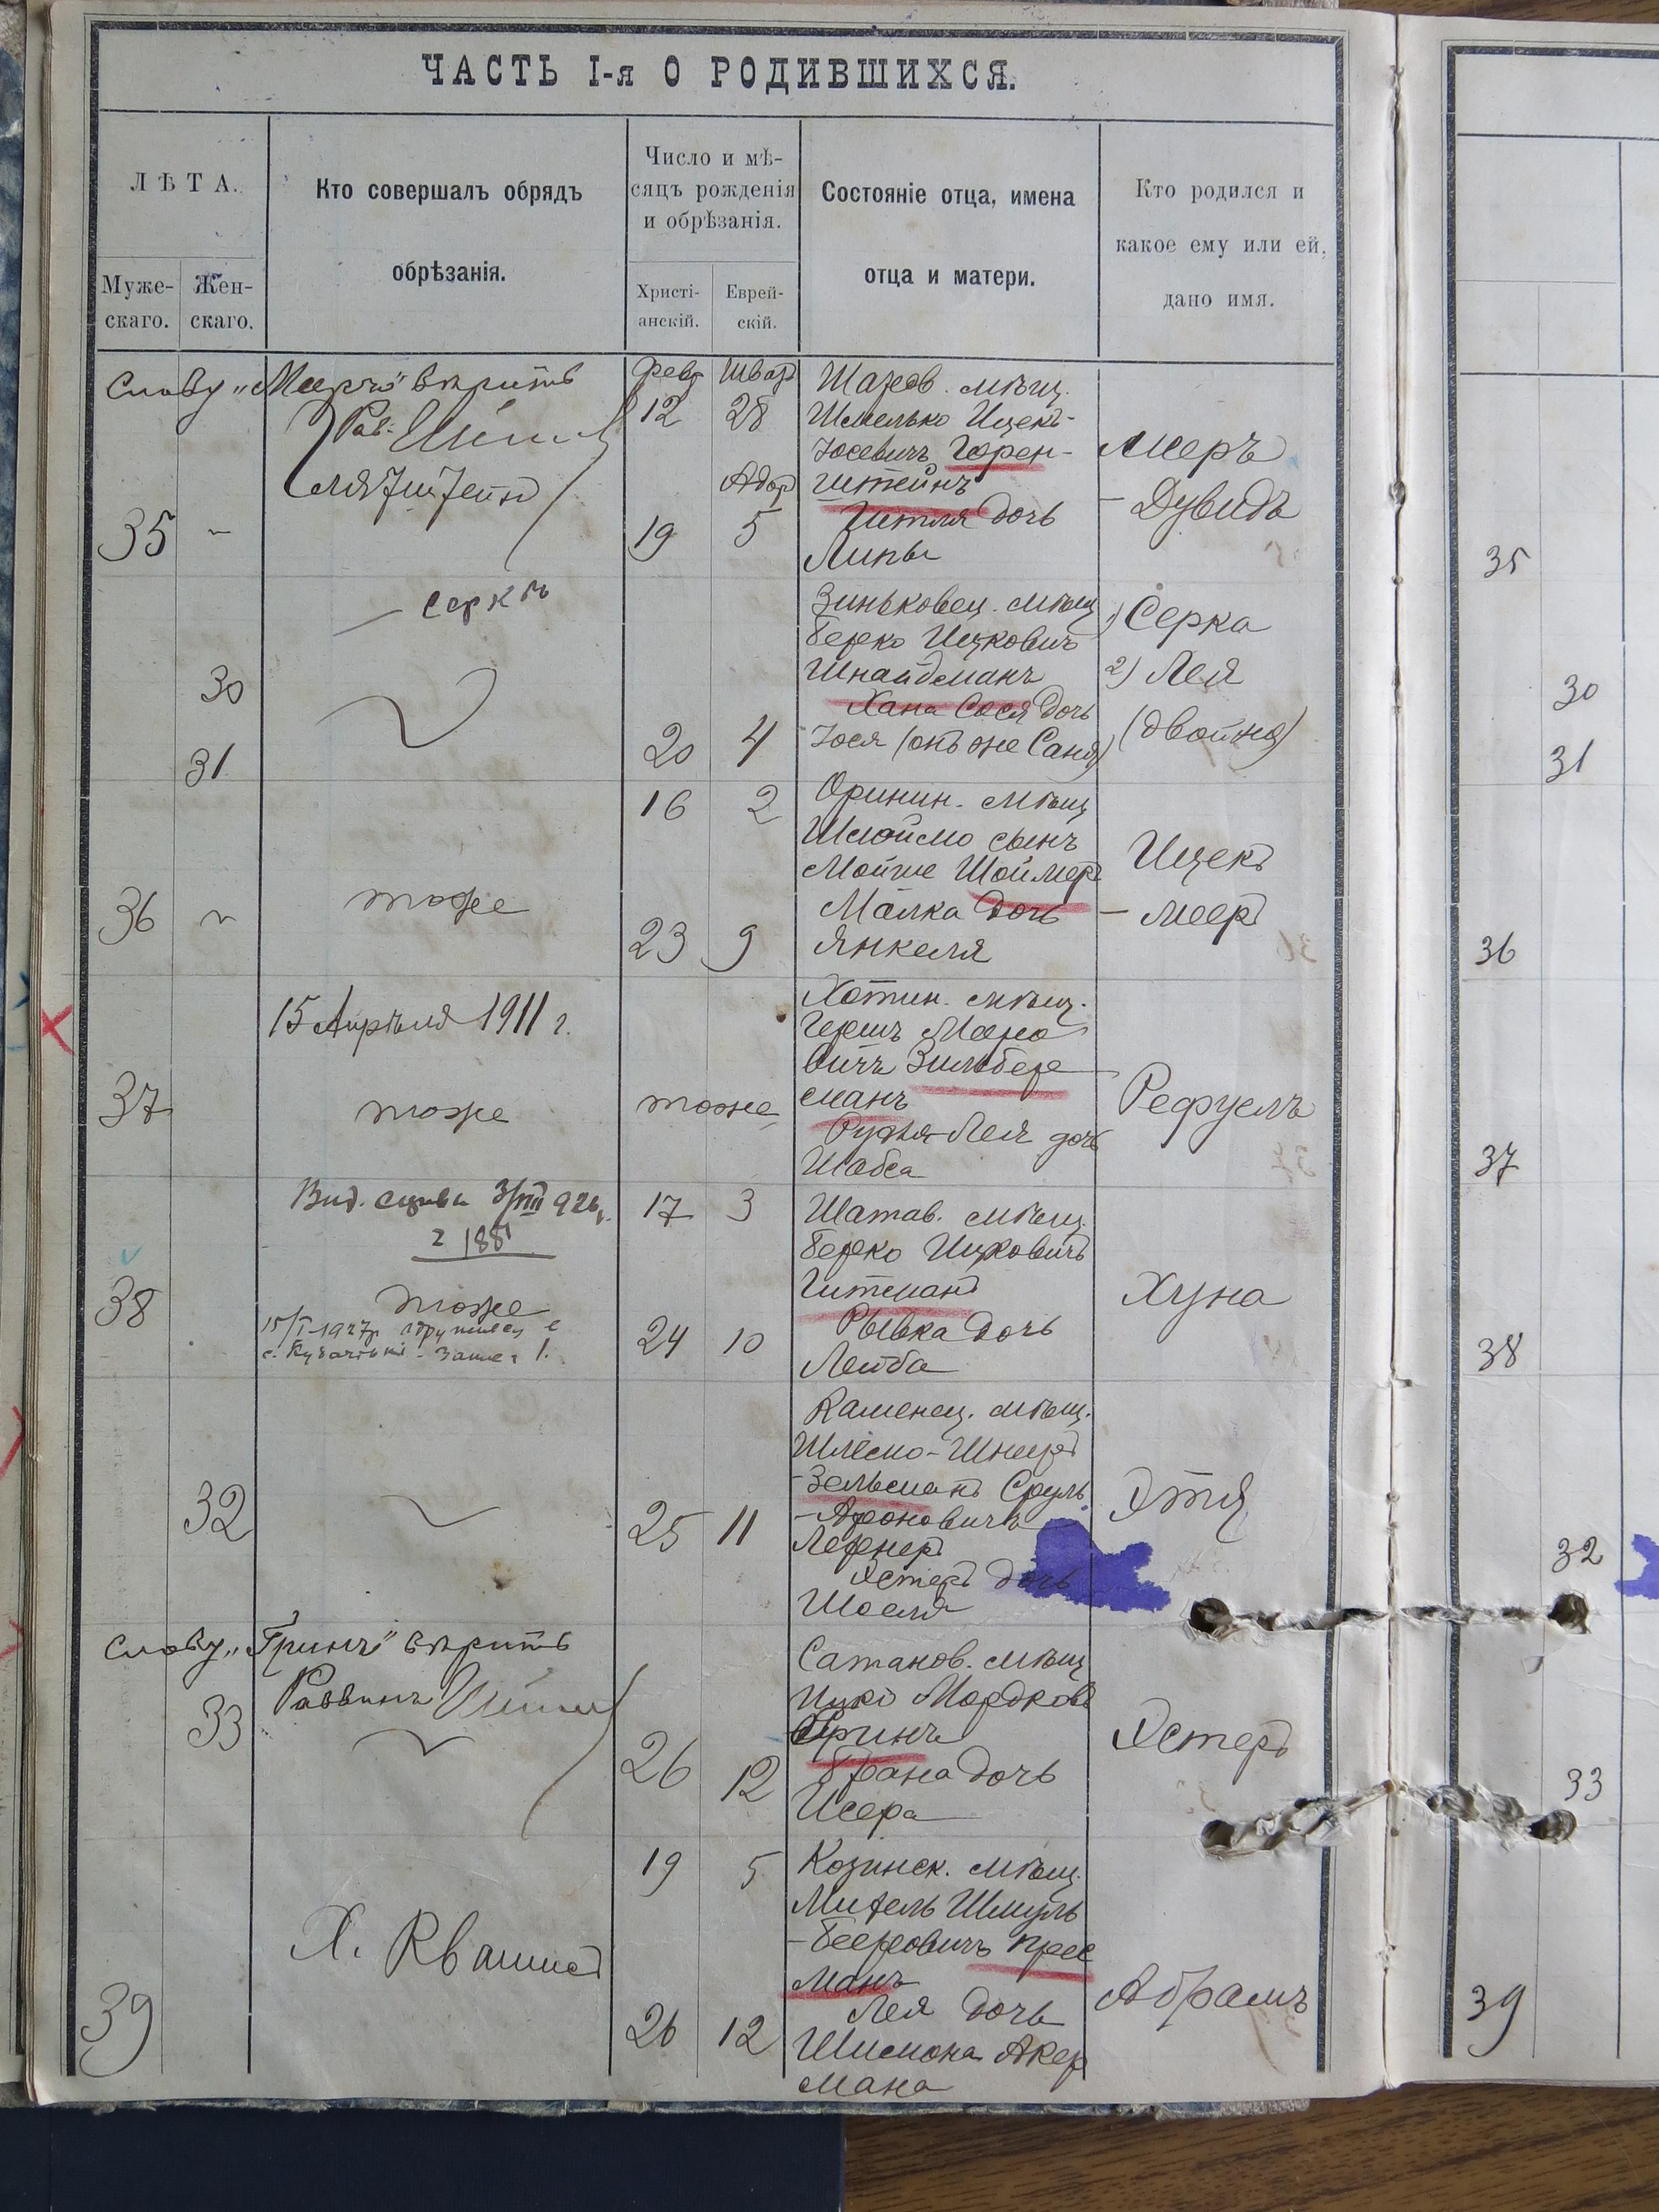 ЧАСТЬ I-я О РОДИВШИХСЯ.
ЛѢТА.
Муже-
скаго.
Жен-
скаго.
Кто совершалъ обрядъ
обрѣзанія.
Число и мѣ-
сяцъ рожденія
и обрѣзанія.
Христі-
анскій.
Еврей-
скій.
Состояніе отца, имена
отца и матери.
Кто родился и
какое ему или ей,
дано имя.
Слову „Мееръ" вѣрить
Рав.
35
Фев
12
19
Шват
28
Адар
5
мѣщ.
Шмелько Ицекъ-
Іосевичъ Горен-
штейнъ
Гитля дочь
Липы
Мееръ
- Дувидъ
35
Серкѣ
30
31
20 4
Зиньковец. мѣщ
Берко Ицковичъ
Шнайдманъ
Хана Сося дочь
Іося (онъ же Саня)
1) Серка
2) Лея
(двойня)
30
31
36
тоже
16 2
23 9
Оринин. мѣщ
Шлоймо сынъ
Мойше Шоймеръ
Малка дочь
Янкеля
Ицекъ
- Мееръ
36
15 Апрѣля 1911 г.
37
тоже
тоже
Хотин. мѣщ.
Гершъ Меро
вичъ Зильбер
манъ
Рухля-Лея дочь
Шабса
Рефуелъ
37
38
тоже
17 3
24 10
Шатав. мѣщ.
Берко Ицковичъ
Гитманъ
Рывка дочь
Лейба
Хуна
38
32
25 11
Каменец. мѣщ.
Шлемо-Шнееръ
-Зельманъ Сруль
-Ароновичъ
Лернеръ
Эстеръ дочь
Шоеля
Этя
32
Слову „Гринъ" вѣрить
Раввинъ
33
26 12
Сатанов. мѣщ
Ицко Мордков
Гринъ
Брана дочь
Исера
Эстеръ
33
39
Х. Квашис
19 5
26 12
Козинск. мѣщ.
Митель Шмуль
-Бееровичъ Прес
манъ
Лея дочь
Шимона Акер
мана
Абрамъ
39